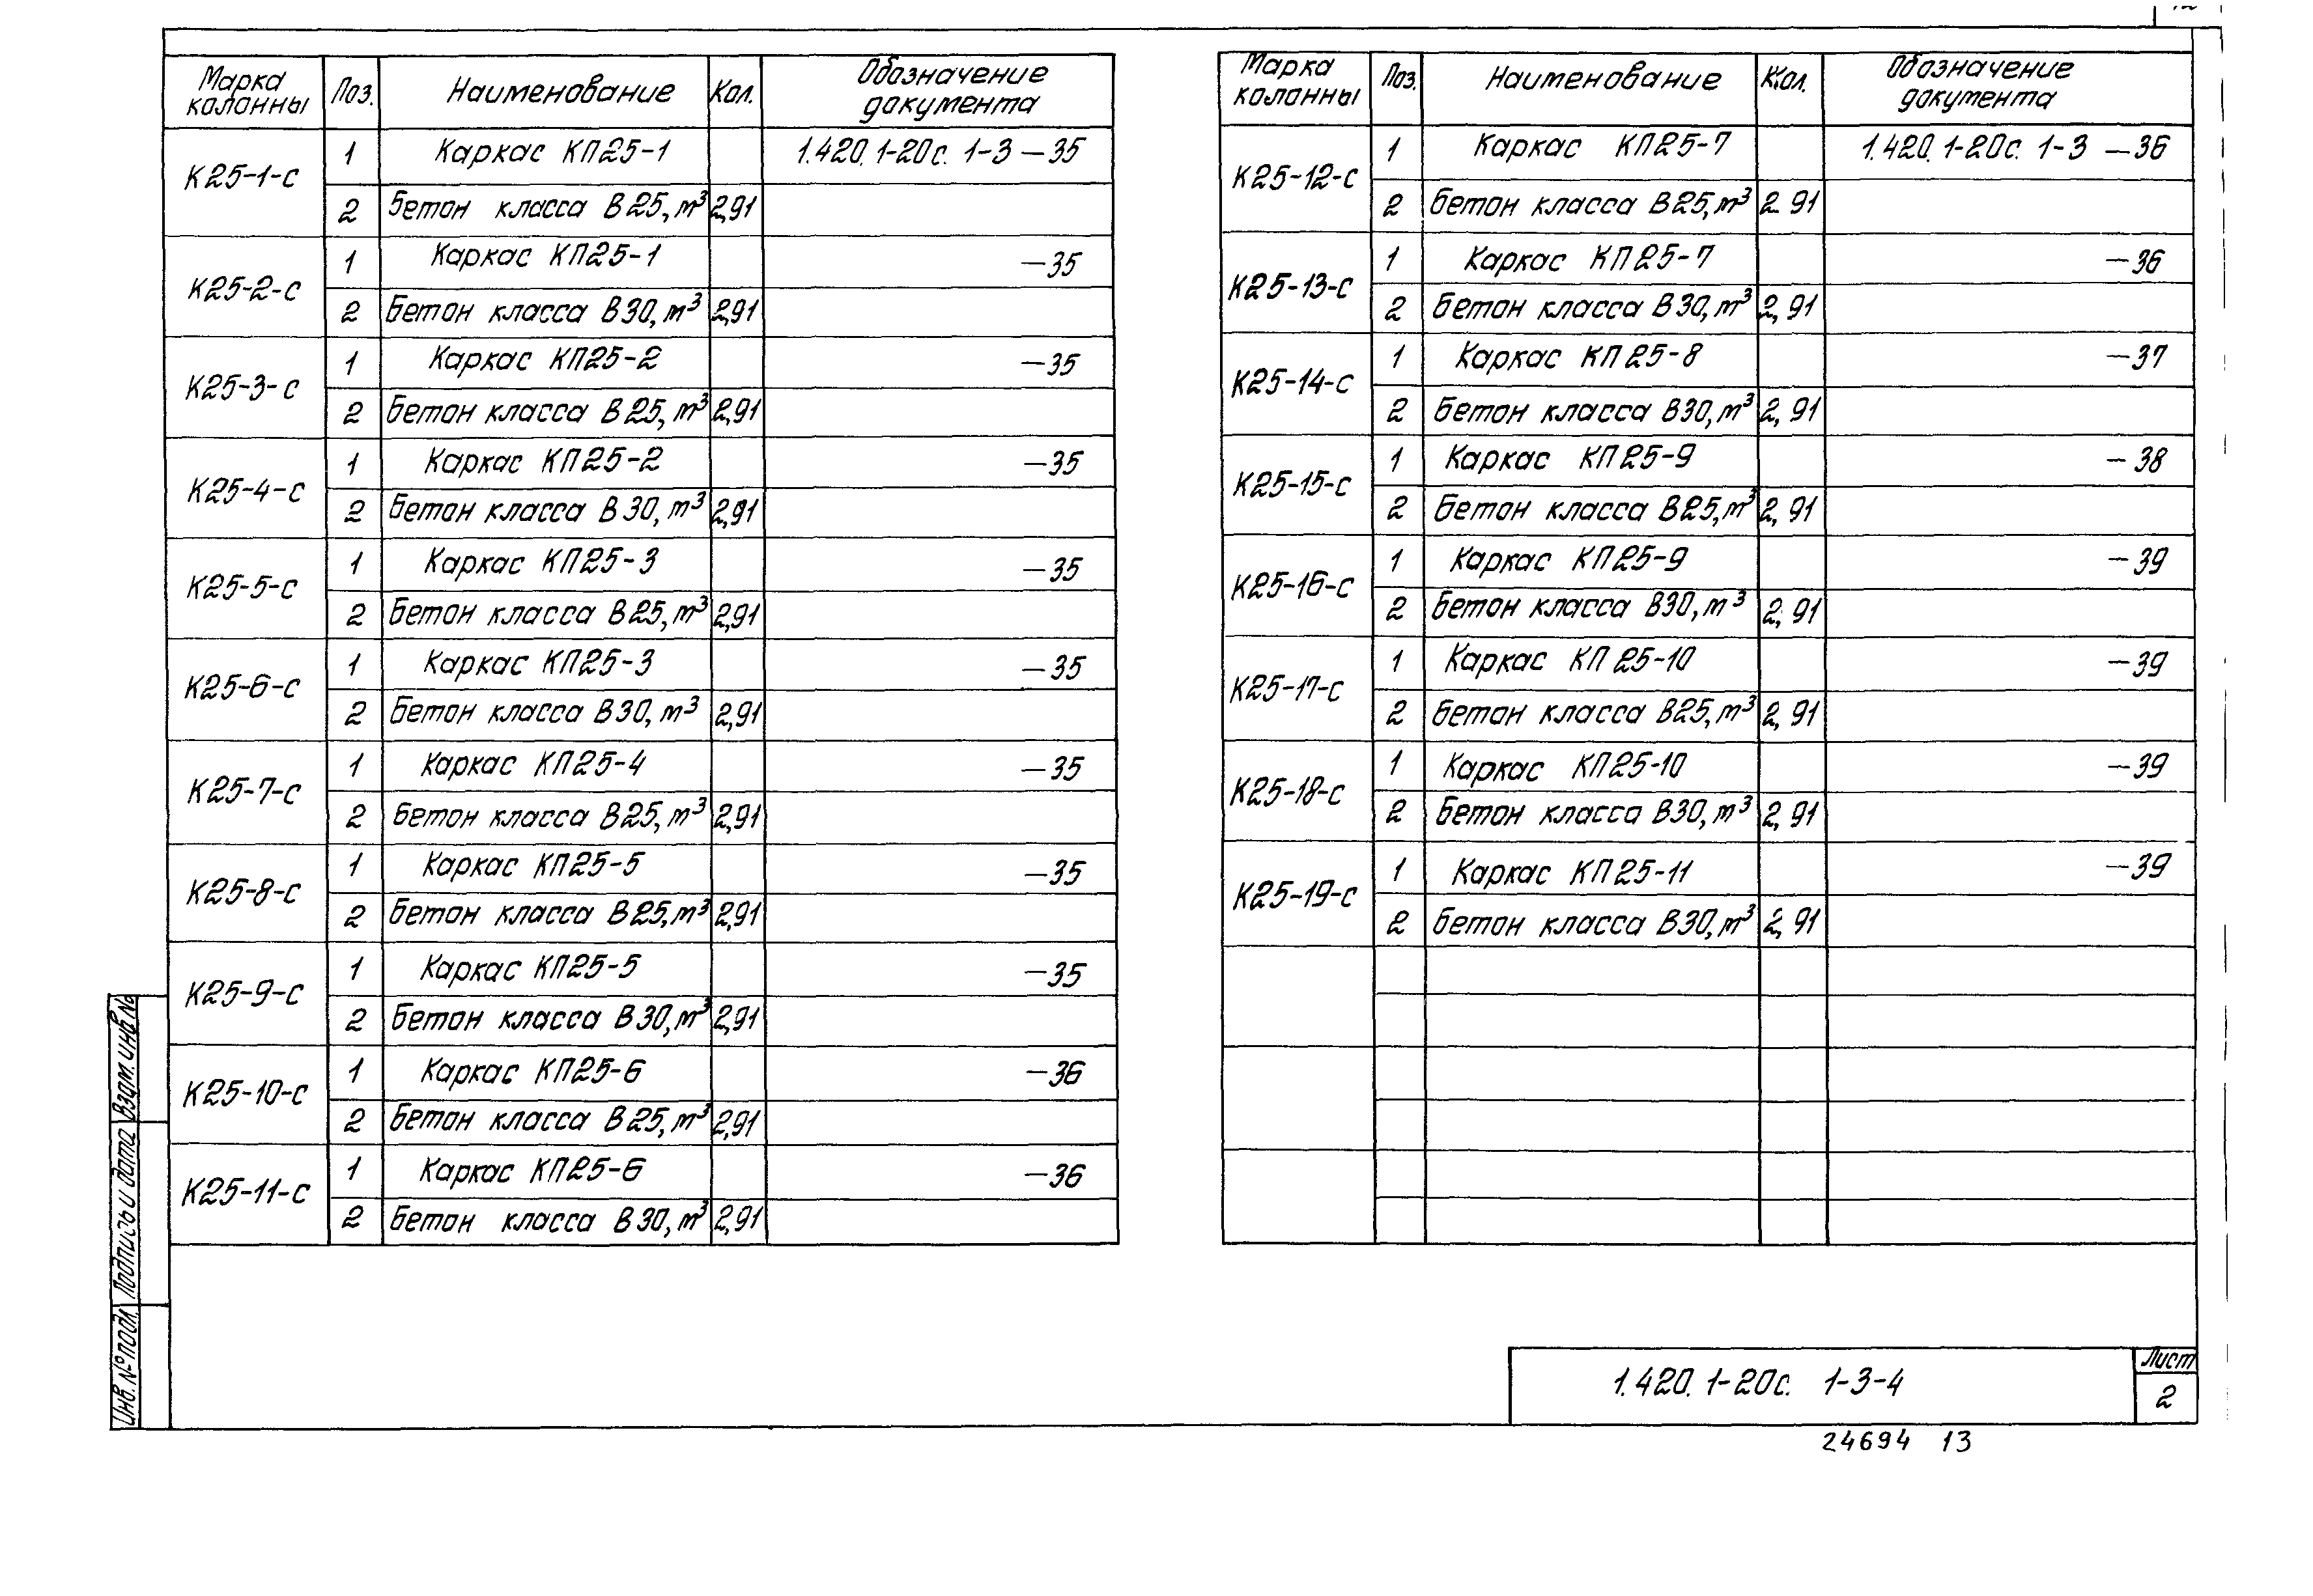 Марка колонны Поз. Наименование Кол. Обозначение документа
К25-1-с 1 Каркас КП25-1 1.420.1-20с. 1-3 —35
2 Бетон класса В25, м³ 2,91
К25-2-с 1 Каркас КП25-1 —35
2 Бетон класса В30, м³ 2,91
К25-3-с 1 Каркас КП25-2 —35
2 Бетон класса В25, м³ 2,91
К25-4-с 1 Каркас КП25-2 —35
2 Бетон класса В30, м³ 2,91
К25-5-с 1 Каркас КП25-3 —35
2 Бетон класса В25, м³ 2,91
К25-6-с 1 Каркас КП25-3 —35
2 Бетон класса В30, м³ 2,91
К25-7-с 1 Каркас КП25-4 —35
2 Бетон класса В25, м³ 2,91
К25-8-с 1 Каркас КП25-5 —35
2 Бетон класса В25, м³ 2,91
К25-9-с 1 Каркас КП25-5 —35
2 Бетон класса В30, м³ 2,91
К25-10-с 1 Каркас КП25-6 —36
2 Бетон класса В25, м³ 2,91
К25-11-с 1 Каркас КП25-6 —36
2 Бетон класса В30, м³ 2,91
Марка колонны Поз. Наименование Кол. Обозначение документа
К25-12-с 1 Каркас КП25-7 1.420.1-20с. 1-3 —36
2 Бетон класса В25, м³ 2.91
К25-13-с 1 Каркас КП25-7 —36
2 Бетон класса В30, м³ 2,91
К25-14-с 1 Каркас КП25-8 —37
2 Бетон класса В30, м³ 2,91
К25-15-с 1 Каркас КП25-9 —38
2 Бетон класса В25, м³ 2,91
К25-16-с 1 Каркас КП25-9 —39
2 Бетон класса В30, м³ 2,91
К25-17-с 1 Каркас КП25-10 —39
2 Бетон класса В25, м³ 2,91
К25-18-с 1 Каркас КП25-10 —39
2 Бетон класса В30, м³ 2,91
К25-19-с 1 Каркас КП25-11 —39
2 Бетон класса В30, м³ 2,91
Инв. № подл. Подпись и дата Взам. инв №
1.420.1-20с. 1-3-4
Лист
2
24694 13